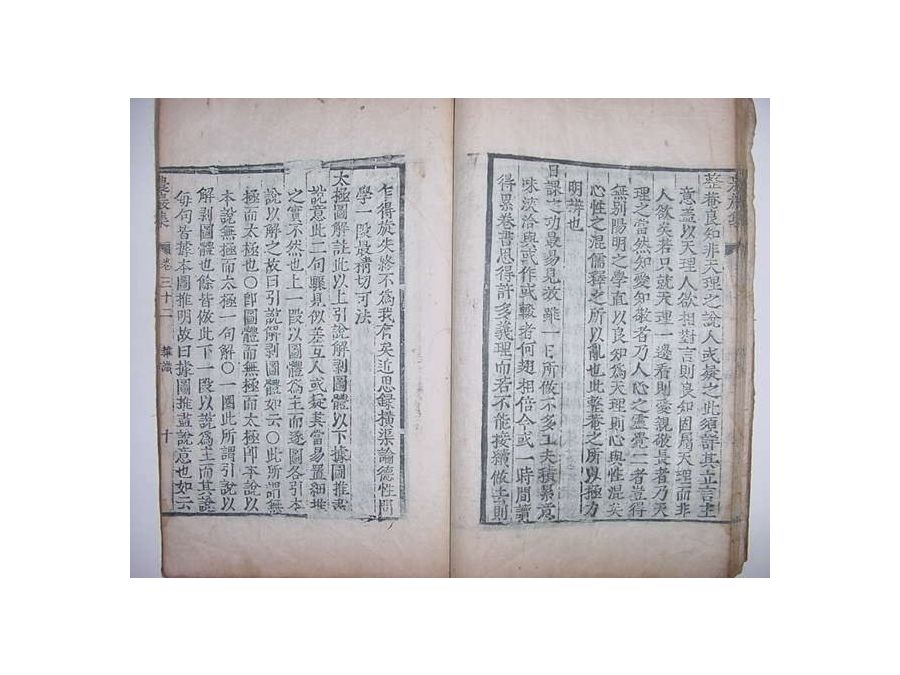 整菴良知非天理之說人或疑之此須詳其立言主
意盖以天理人欲相對言則良知固屬天理而非
人欲矣若只就天理一邊看則愛親敬長者乃天
理之當然知愛知敬者乃人心之靈覺二者豈得
無別陽明之學直以良知爲天理則心與性混矣
心性之混儒釋之所以亂也此整菴之所以極力
明辨也
日課之功最易見效雖一日所做不多工夫積累意
味浹洽與或作或輟者何翅相倍今或一時間讀
得累卷書思得許多義理而若不能接續做去則
乍得旋失終不爲我有矣近思錄橫渠論德性問
學一段最精切可法
太極圖解註此以上引說解剥圖體以下據圖推盡
說意此二句驟見似差互人或疑其當易置細推
之實不然也上一段以圖體爲主而逐圖各引本
說以解之故曰引說解剥圖體如云〇此所謂無
極而太極也〇卽圖體而無極而太極卽本說以
本說無極而太極一句解〇一圖此所謂引說以
解剥圖體也餘皆倣此下一段以說爲主而其說
每句皆據本圖推明故曰據圖推盡說意也如云
農巖集 卷三十二 雜識 十